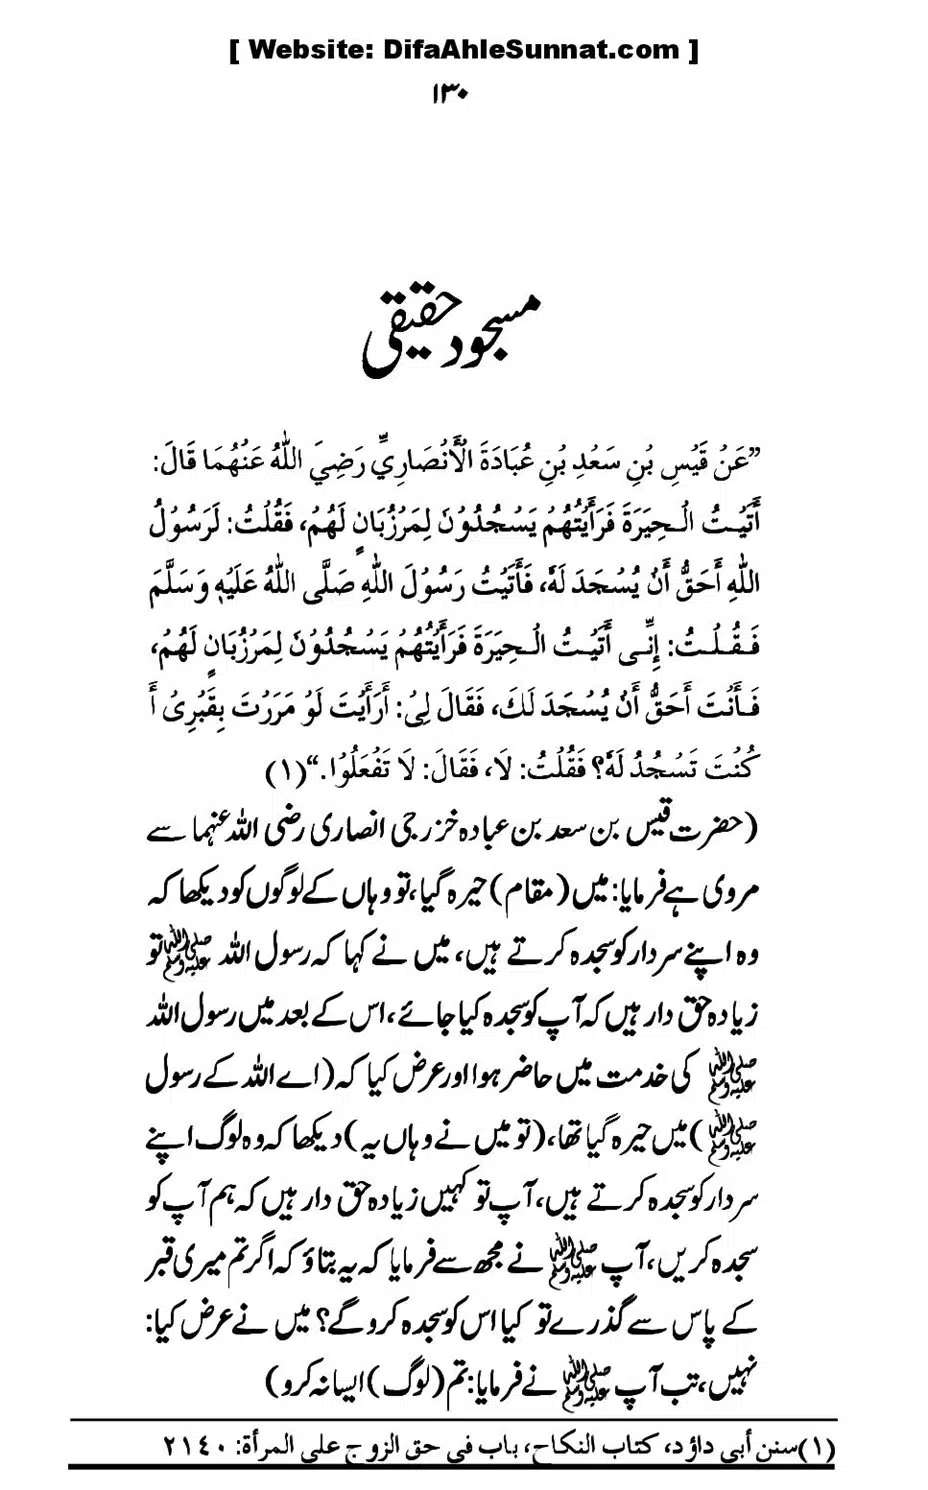 [ Website: DifaAhleSunnat.com ]
۱۳۰
مسجود حقیقی
”عَنْ قَيْسِ بْنِ سَعْدِ بْنِ عُبَادَةَ الْأَنْصَارِيِّ رَضِيَ اللّٰهُ عَنْهُمَا قَالَ:
أَتَيْتُ الْحِيَرَةَ فَرَأَيْتُهُمْ يَسْجُدُوْنَ لِمَرْزُبَانٍ لَهُمْ، فَقُلْتُ: لَرَسُوْلُ
اللّٰهِ أَحَقُّ أَنْ يُسْجَدَ لَهٗ، فَأَتَيْتُ رَسُوْلَ اللّٰهِ صَلَّى اللّٰهُ عَلَيْهِ وَسَلَّمَ
فَقُلْتُ: إِنِّى أَتَيْتُ الْحِيَرَةَ فَرَأَيْتُهُمْ يَسْجُدُوْنَ لِمَرْزُبَانٍ لَهُمْ،
فَأَنْتَ أَحَقُّ أَنْ يُسْجَدَ لَكَ، فَقَالَ لِيْ: أَرَأَيْتَ لَوْ مَرَرْتَ بِقَبْرِىْ أَ
كُنْتَ تَسْجُدُ لَهٗ؟ فَقُلْتُ: لَا، فَقَالَ: لَا تَفْعَلُوْا.“(۱)
(حضرت قیس بن سعد بن عبادہ خزرجی انصاری رضی اللہ عنہما سے
مروی ہے فرمایا: میں (مقام) حیرہ گیا، تو وہاں کے لوگوں کو دیکھا کہ
وہ اپنے سردار کو سجدہ کرتے ہیں، میں نے کہا کہ رسول اللہ ﷺ تو
زیادہ حق دار ہیں کہ آپ کو سجدہ کیا جائے، اس کے بعد میں رسول اللہ
ﷺ کی خدمت میں حاضر ہوا اور عرض کیا کہ (اے اللہ کے رسول
ﷺ) میں حیرہ گیا تھا، (تو میں نے وہاں یہ) دیکھا کہ وہ لوگ اپنے
سردار کو سجدہ کرتے ہیں، آپ تو کہیں زیادہ حق دار ہیں کہ ہم آپ کو
سجدہ کریں، آپ ﷺ نے مجھ سے فرمایا کہ یہ بتاؤ کہ اگر تم میری قبر
کے پاس سے گذرے تو کیا اس کو سجدہ کرو گے؟ میں نے عرض کیا:
نہیں، تب آپ ﷺ نے فرمایا: تم (لوگ) ایسا نہ کرو)
(۱) سنن أبی داؤد، کتاب النکاح، باب فی حق الزوج علی المرأة: ۲۱٤۰